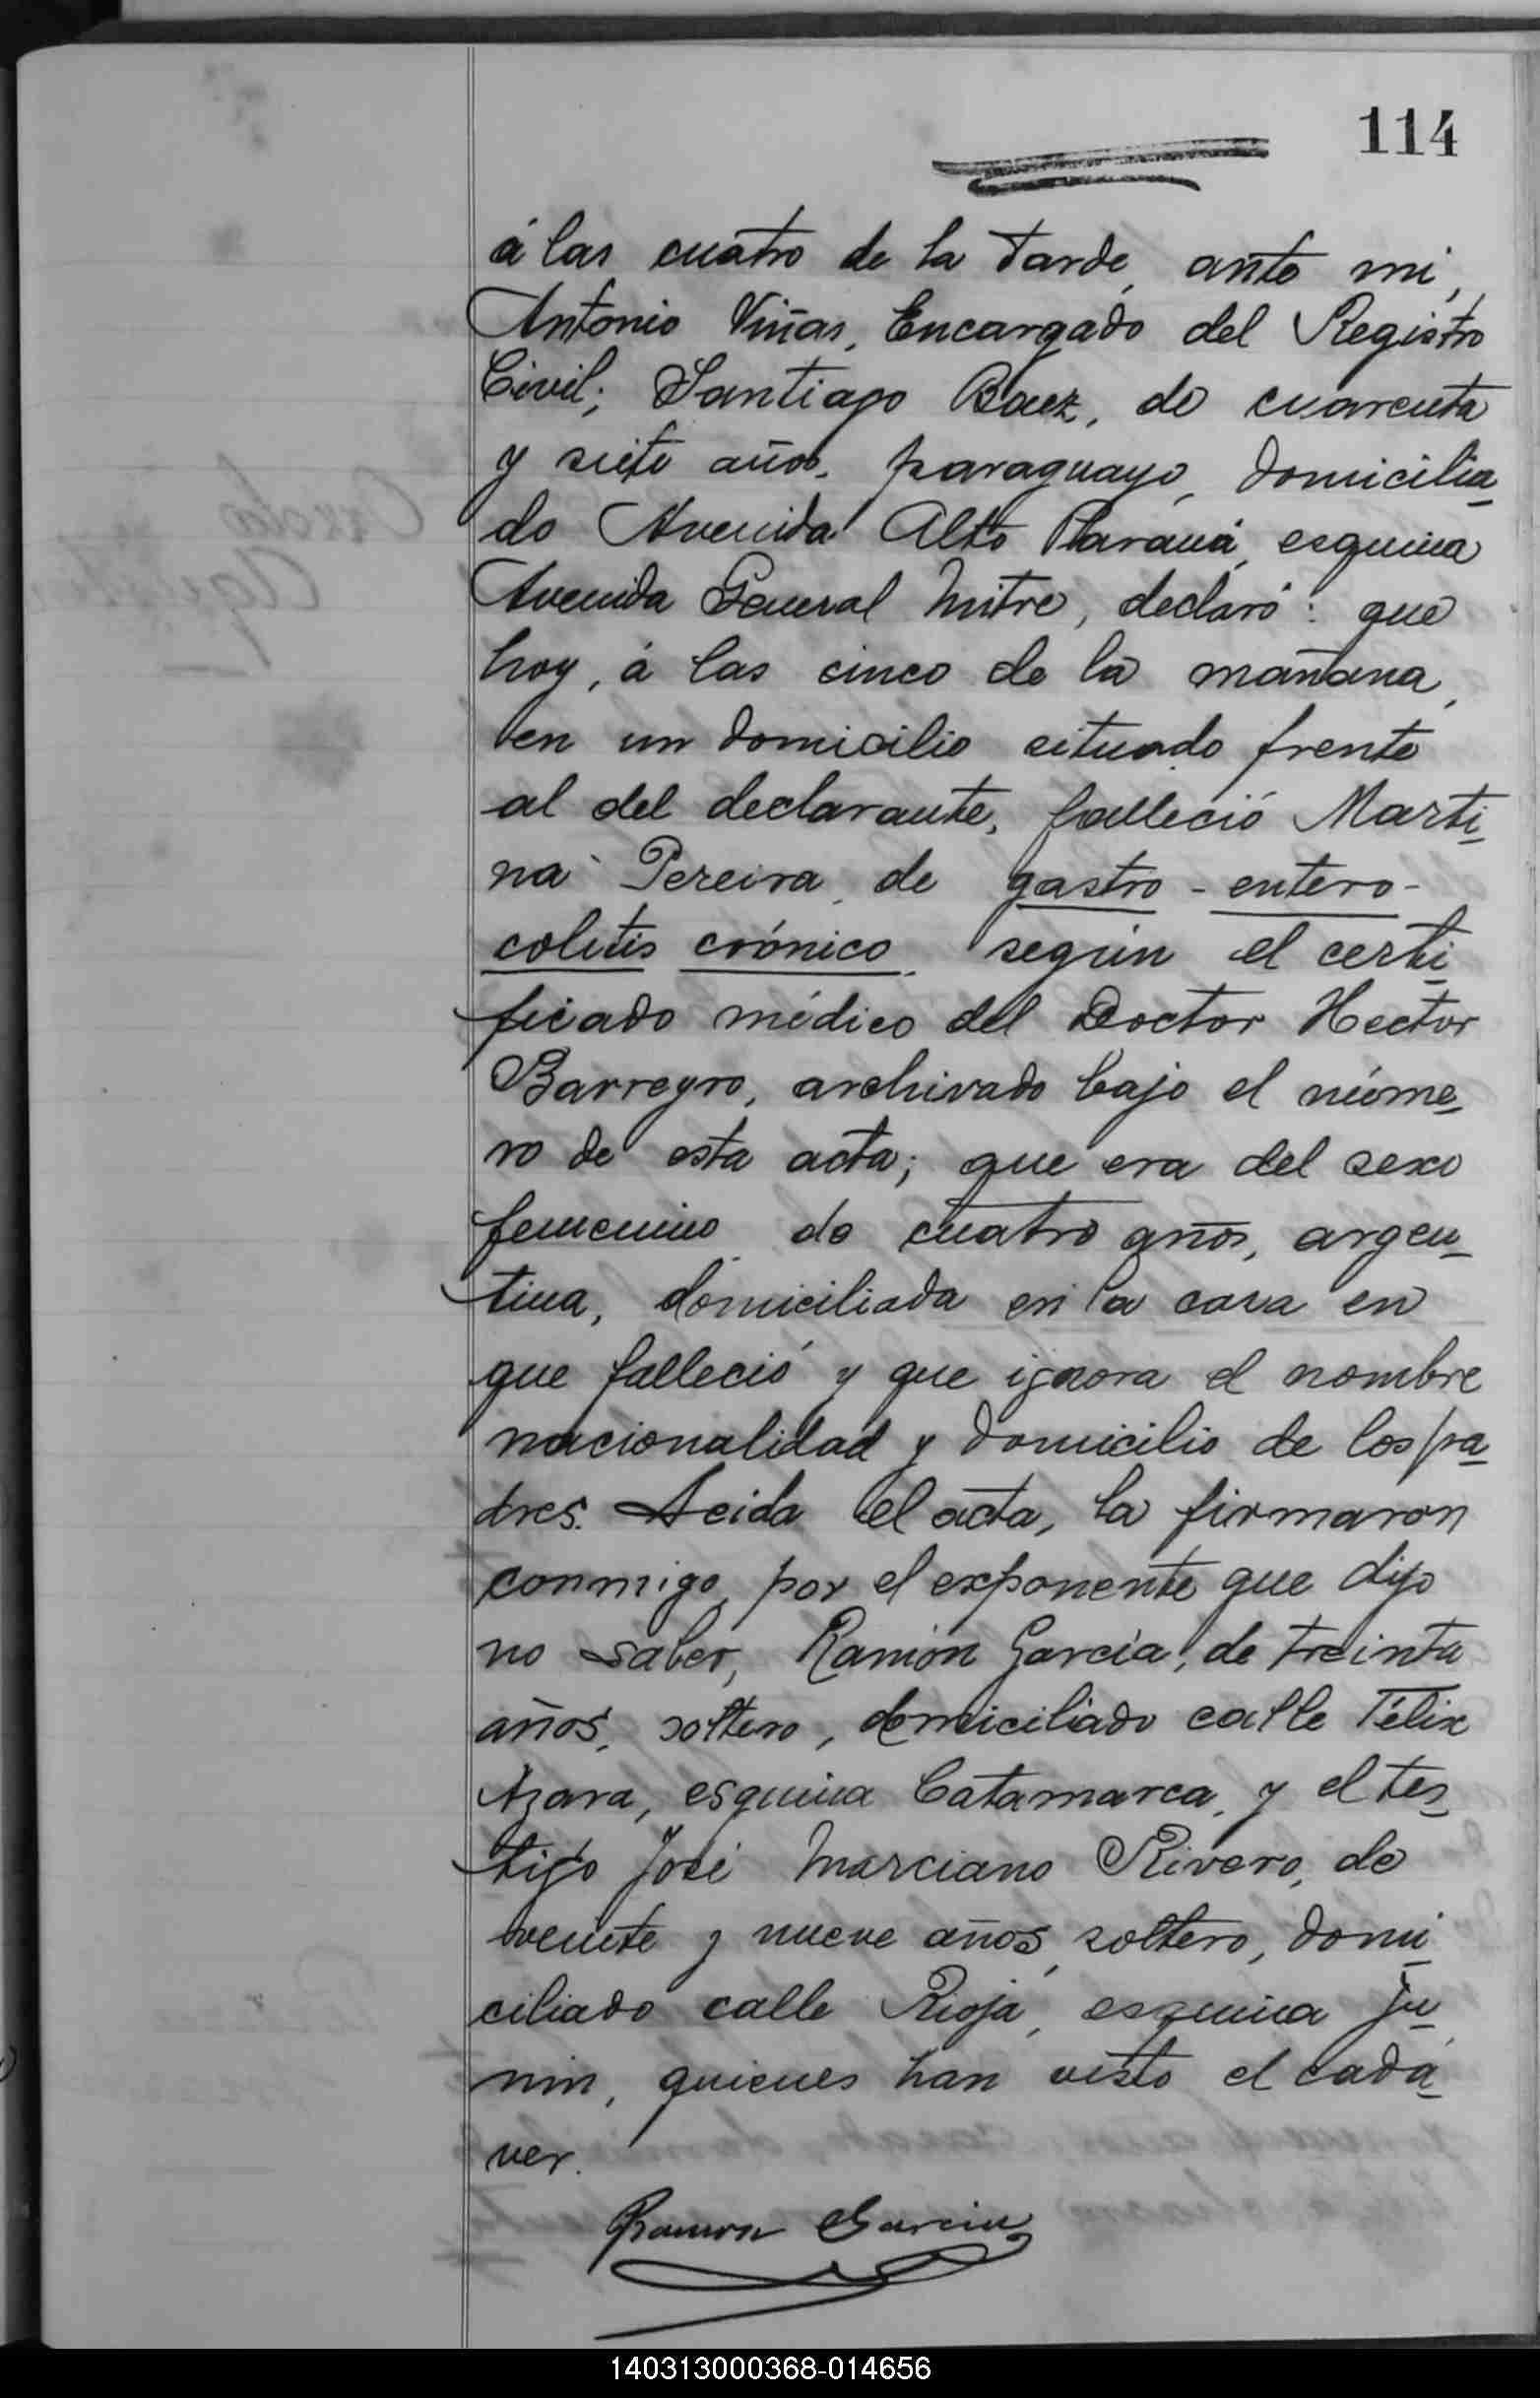 114
á las cuatro de la tarde, ante mi,
Antonio Viñas, Encargado del Registro
Civil; Santiago Baez, de cuarenta
y siete años, paraguayo, domicilia-
do Avenida Alto Paraná, esquina
Avenida General Mitre, declaró: que
hoy, á las cinco de la mañana,
en un domicilio situado frente
al del declarante, falleció Marti-
na Pereira, de gastro-entero-
colitis crónico, según el certi-
ficado médico del Doctor Hector
Barreyro, archivado bajo el núme-
ro de esta acta; que era del sexo
femenino, de cuatro años, argen-
tina, domiciliada en la casa en
que falleció y que ignora el nombre
nacionalidad y domicilio de los pa-
dres. Leida el acta, la firmaron
conmigo, por el exponente que dijo
no saber, Ramón García, de treinta
años, soltero, domiciliado calle Félix
Azara, esquina Catamarca, y el tes-
tigo José Marciano Rivero, de
veinte y nueve años, soltero, domi-
ciliado calle Rioja, esquina Ju-
nin, quienes han visto el cadá-
ver.
Ramon Garcia
140313000368-014656